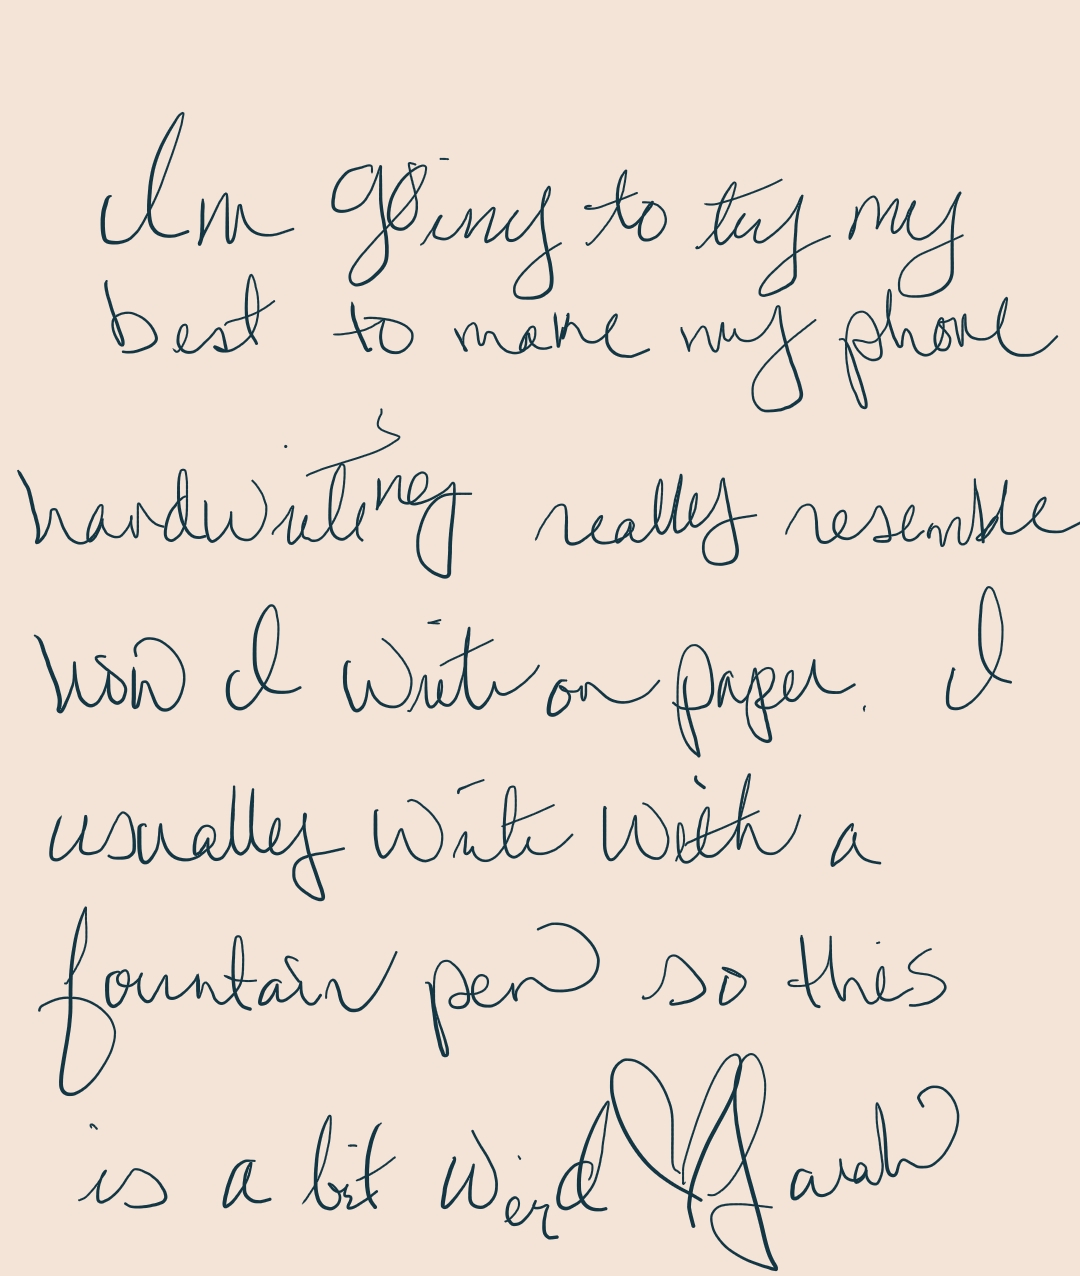 Im going to try my
best to make my phone
handwriting really resemble
how I write on paper. I
usually write with a
fountain pen so this
is a bit weird Sarah